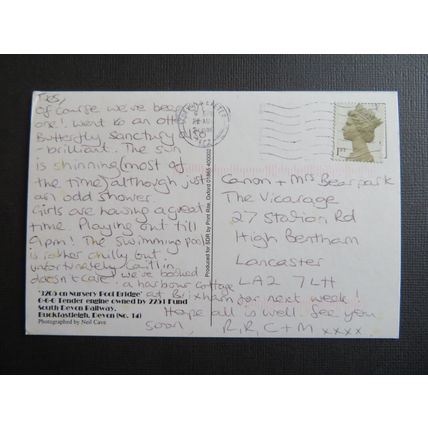 Yes,
Of course we've been on
one! Went to an otter
Butterfly sanctuary also
- brilliant. The sun
is shinning (most of
the time) although just
an odd shower.
Girls are having a great
time. Playing out till
9pm! The swimming pool
is rather chilly but
unfortunately Caitlin
doesn't care. We've booked
a harbour cottage
at Brixham for next week!
Hope all is well. See you
soon, R, R, C + M xxxx
'3205 on Nursery Pool Bridge'
0-6-0 Tender engine owned by 2251 Fund
South Devon Railway,
Buckfastleigh, Devon (No. 14)
Photographed by Neil Cave
Produced for SDR by Print Rite, Oxford 01865
1ST
Canon + Mrs Bearpark
The Vicarage
27 Station Rd
High Bentham
Lancaster
LA2 7LH